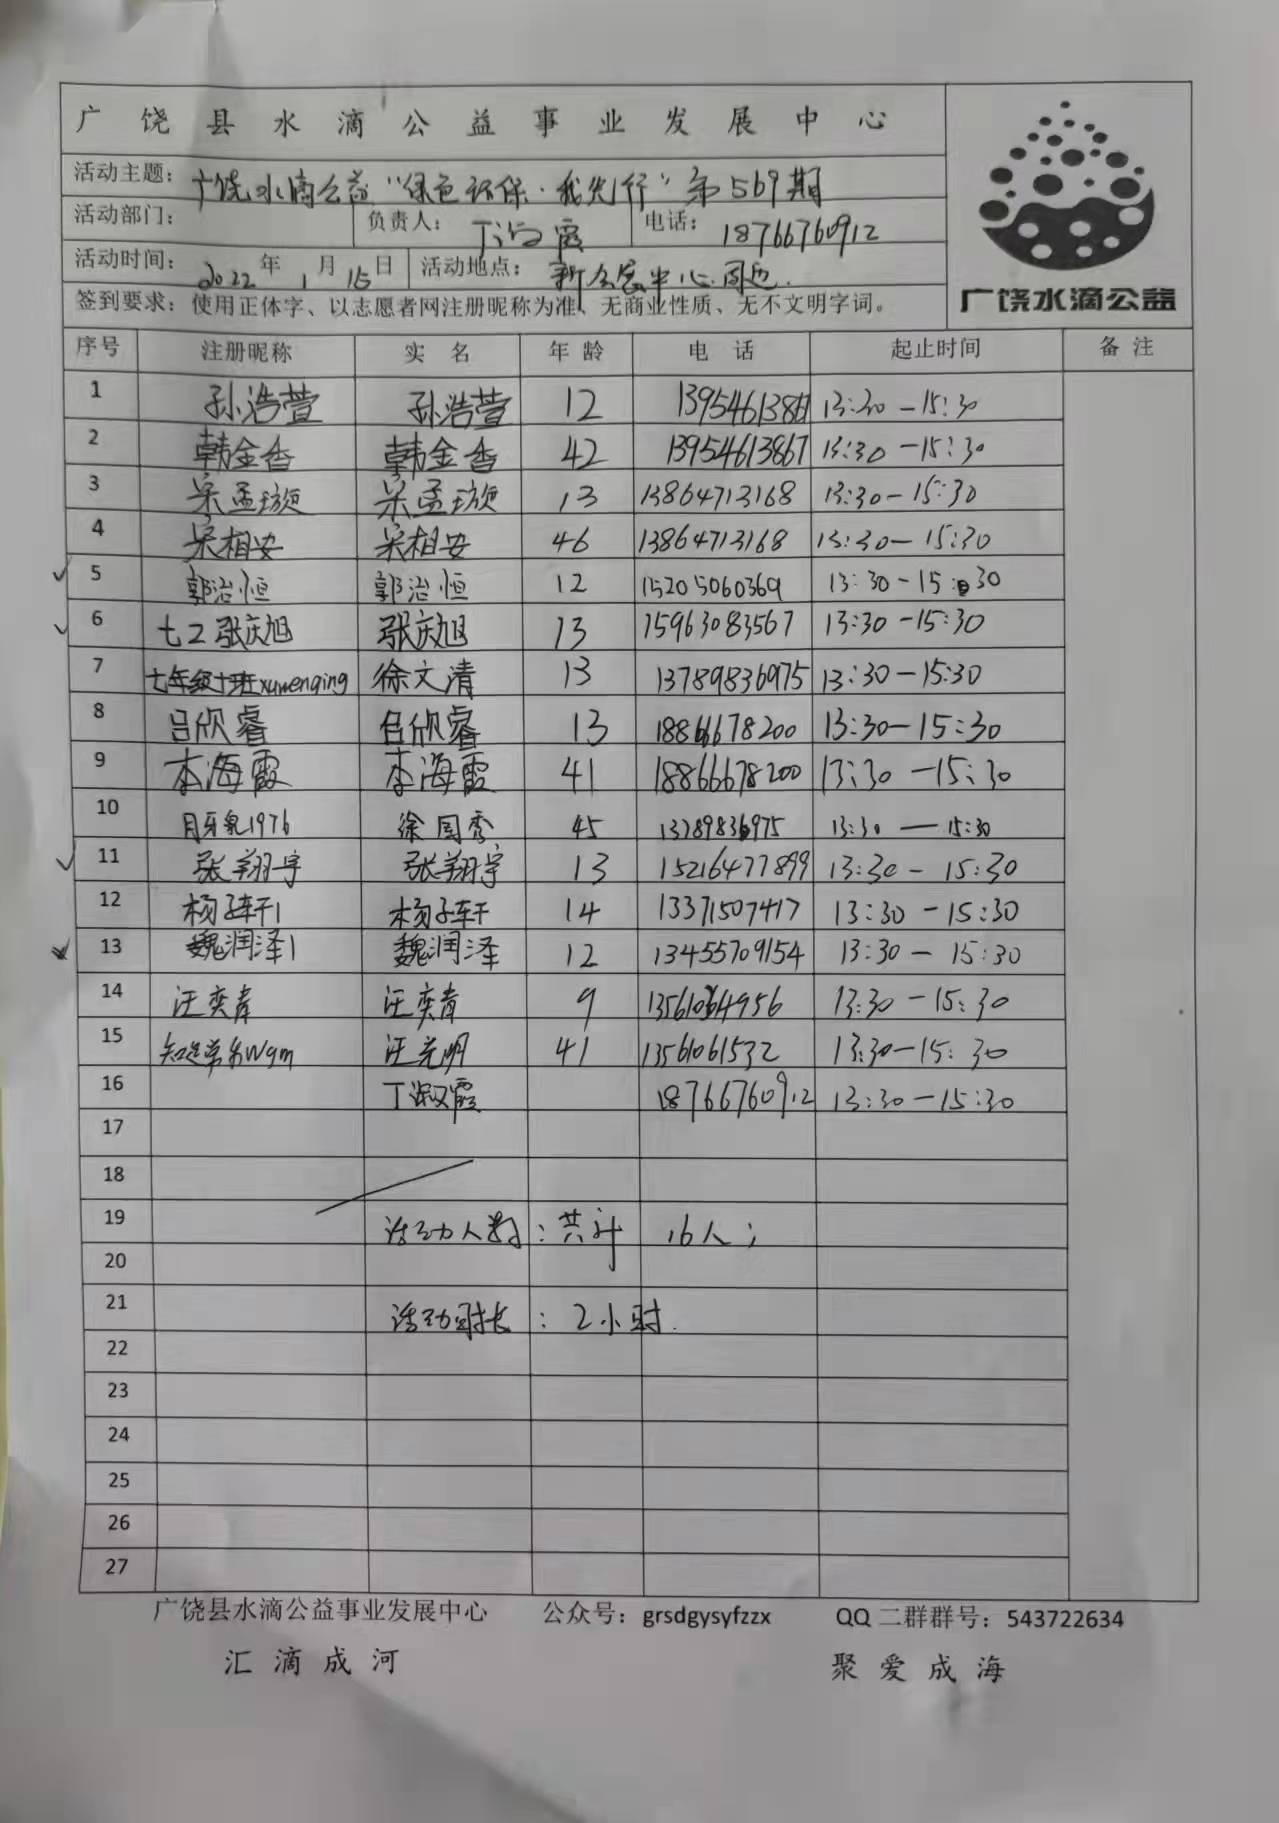 广饶县水滴公益事业发展中心
活动主题： 广饶水滴公益“绿色环保·我先行”第569期
活动部门： 负责人： 丁淑霞 电话： 18766760912
活动时间： 2022年1月15日 活动地点： 新会展中心周边.
签到要求：使用正体字、以志愿者网注册昵称为准、无商业性质、无不文明字词。
广饶水滴公益
序号 注册昵称 实名 年龄 电话 起止时间 备注
1 孙浩萱 孙浩萱 12 13:30-15:30
2 韩金香 韩金香 42 13954613867 13:30-15:30
3 宋孟璇 宋孟璇 13 13864713168 13:30-15:30
4 宋相安 宋相安 46 13864713168 13:30-15:30
5 郭治恒 郭治恒 12 15205060369 13:30-15:30
6 七2张庆旭 张庆旭 13 15963083567 13:30-15:30
7 七年级十班xuwenqing 徐文清 13 13789836975 13:30-15:30
8 吕欣睿 吕欣睿 13 18866678200 13:30-15:30
9 李海霞 李海霞 41 18866678200 13:30-15:30
10 月牙泉1976 徐国秀 45 13789836975 13:30—15:30
11 张翔宇 张翔宇 13 15216477899 13:30-15:30
12 杨子轩1 杨子轩 14 13371507417 13:30-15:30
13 魏润泽1 魏润泽 12 13455709154 13:30-15:30
14 汪奕青 汪奕青 9 13:30-15:30
15 知足常乐wgm 汪光明 41 13561061532 13:30-15:30
16 丁淑霞 18766760912 13:30-15:30
17
18
19 活动人数：共计 16人；
20
21 活动时长：2小时.
22
23
24
25
26
27
广饶县水滴公益事业发展中心 公众号：grsdgysyfzzx QQ二群群号：543722634
汇滴成河 聚爱成海